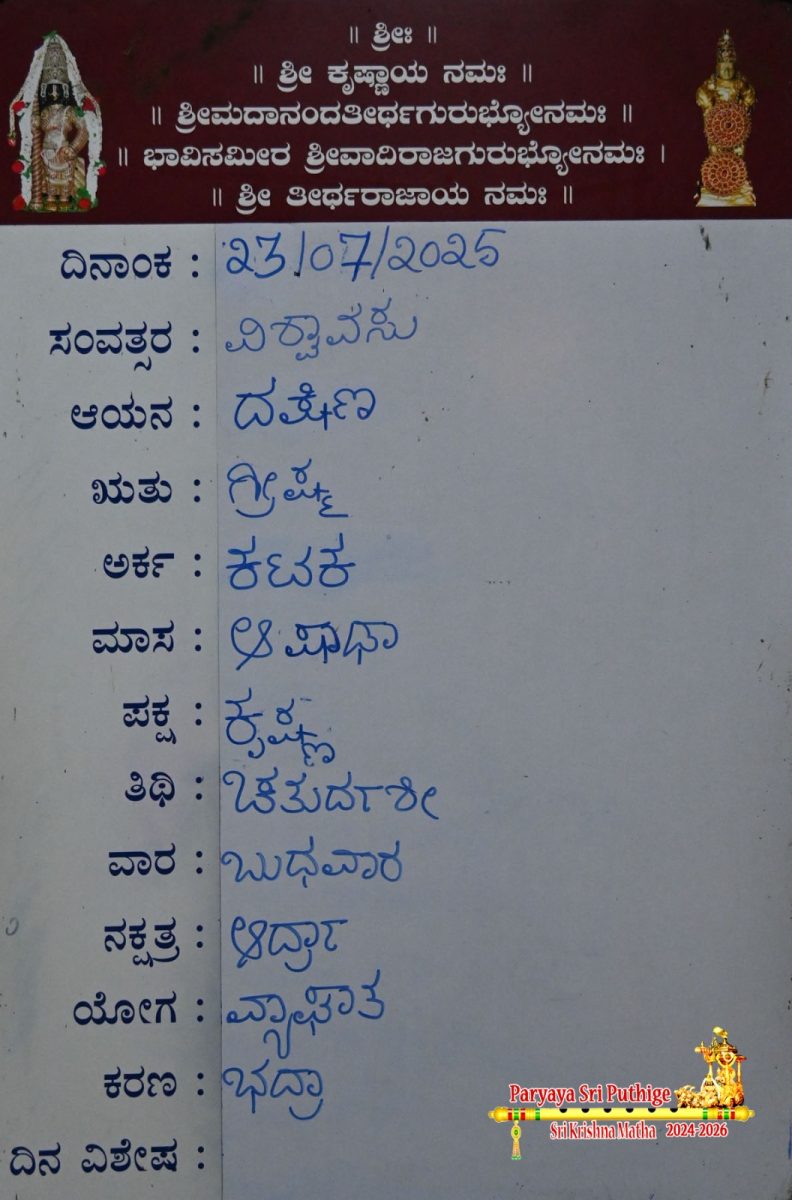 ॥ ಶ್ರೀಃ ॥
॥ ಶ್ರೀ ಕೃಷ್ಣಾಯ ನಮಃ ॥
॥ ಶ್ರೀಮದಾನಂದತೀರ್ಥಗುರುಭ್ಯೋನಮಃ ॥
॥ ಭಾವಿಸಮೀರ ಶ್ರೀವಾದಿರಾಜಗುರುಭ್ಯೋನಮಃ ।
॥ ಶ್ರೀ ತೀರ್ಥರಾಜಾಯ ನಮಃ ॥
ದಿನಾಂಕ : 23/07/2025
ಸಂವತ್ಸರ : ವಿಶ್ವಾವಸು
ಆಯನ : ದಕ್ಷಿಣ
ಋತು : ಗ್ರೀಷ್ಮ
ಅರ್ಕ : ಕಟಕ
ಮಾಸ : ಆಷಾಢಾ
ಪಕ್ಷ : ಕೃಷ್ಣ
ತಿಥಿ : ಚತುರ್ದಶೀ
ವಾರ : ಬುಧವಾರ
ನಕ್ಷತ್ರ : ಆರ್ದ್ರಾ
ಯೋಗ : ವ್ಯಾಘಾತ
ಕರಣ : ಭದ್ರಾ
ದಿನ ವಿಶೇಷ :
Paryaya Sri Puthige
Sri Krishna Matha 2024-2026